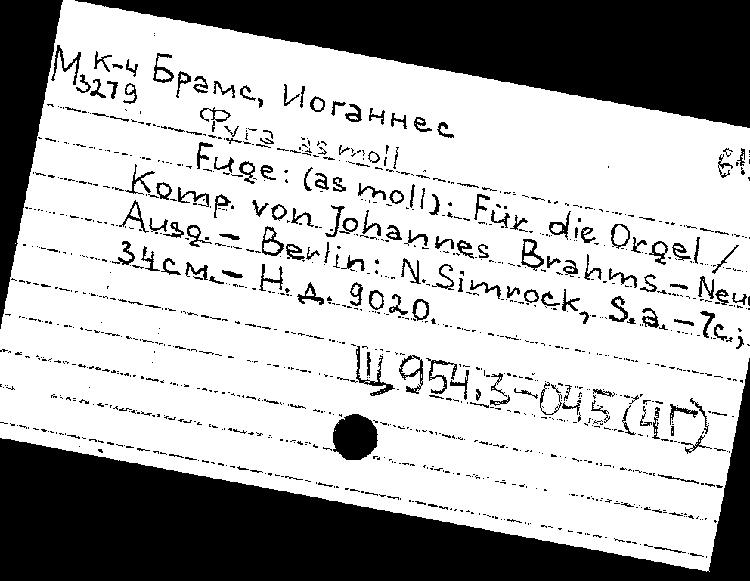 М К-4 Брамс, Иоганнес
3279
Фуга as moll
Fuge: (as moll): Für die Orgel /
Komp. von Johannes Brahms. – Neu
Ausg. – Berlin: N. Simrock, S.a. – 7c.;
34 см. – Н. д. 9020.
Щ 954.3-045 (4Г)